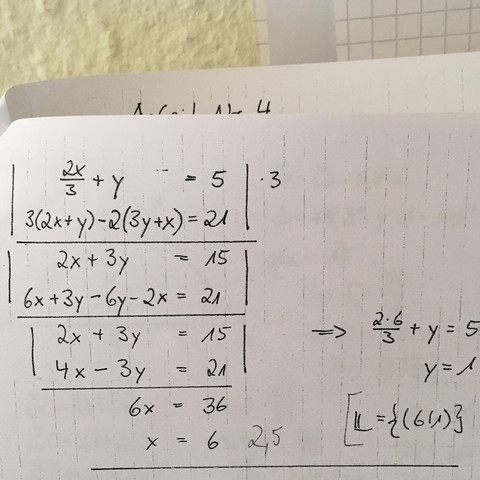 2x/3 + y = 5 | · 3
3(2x+y)-2(3y+x) = 21
2x + 3y = 15
6x + 3y - 6y - 2x = 21
2x + 3y = 15
4x - 3y = 21
6x = 36
x = 6 2,5
=> 2·6/3 + y = 5
y = 1
𝕃 = {(6|1)}